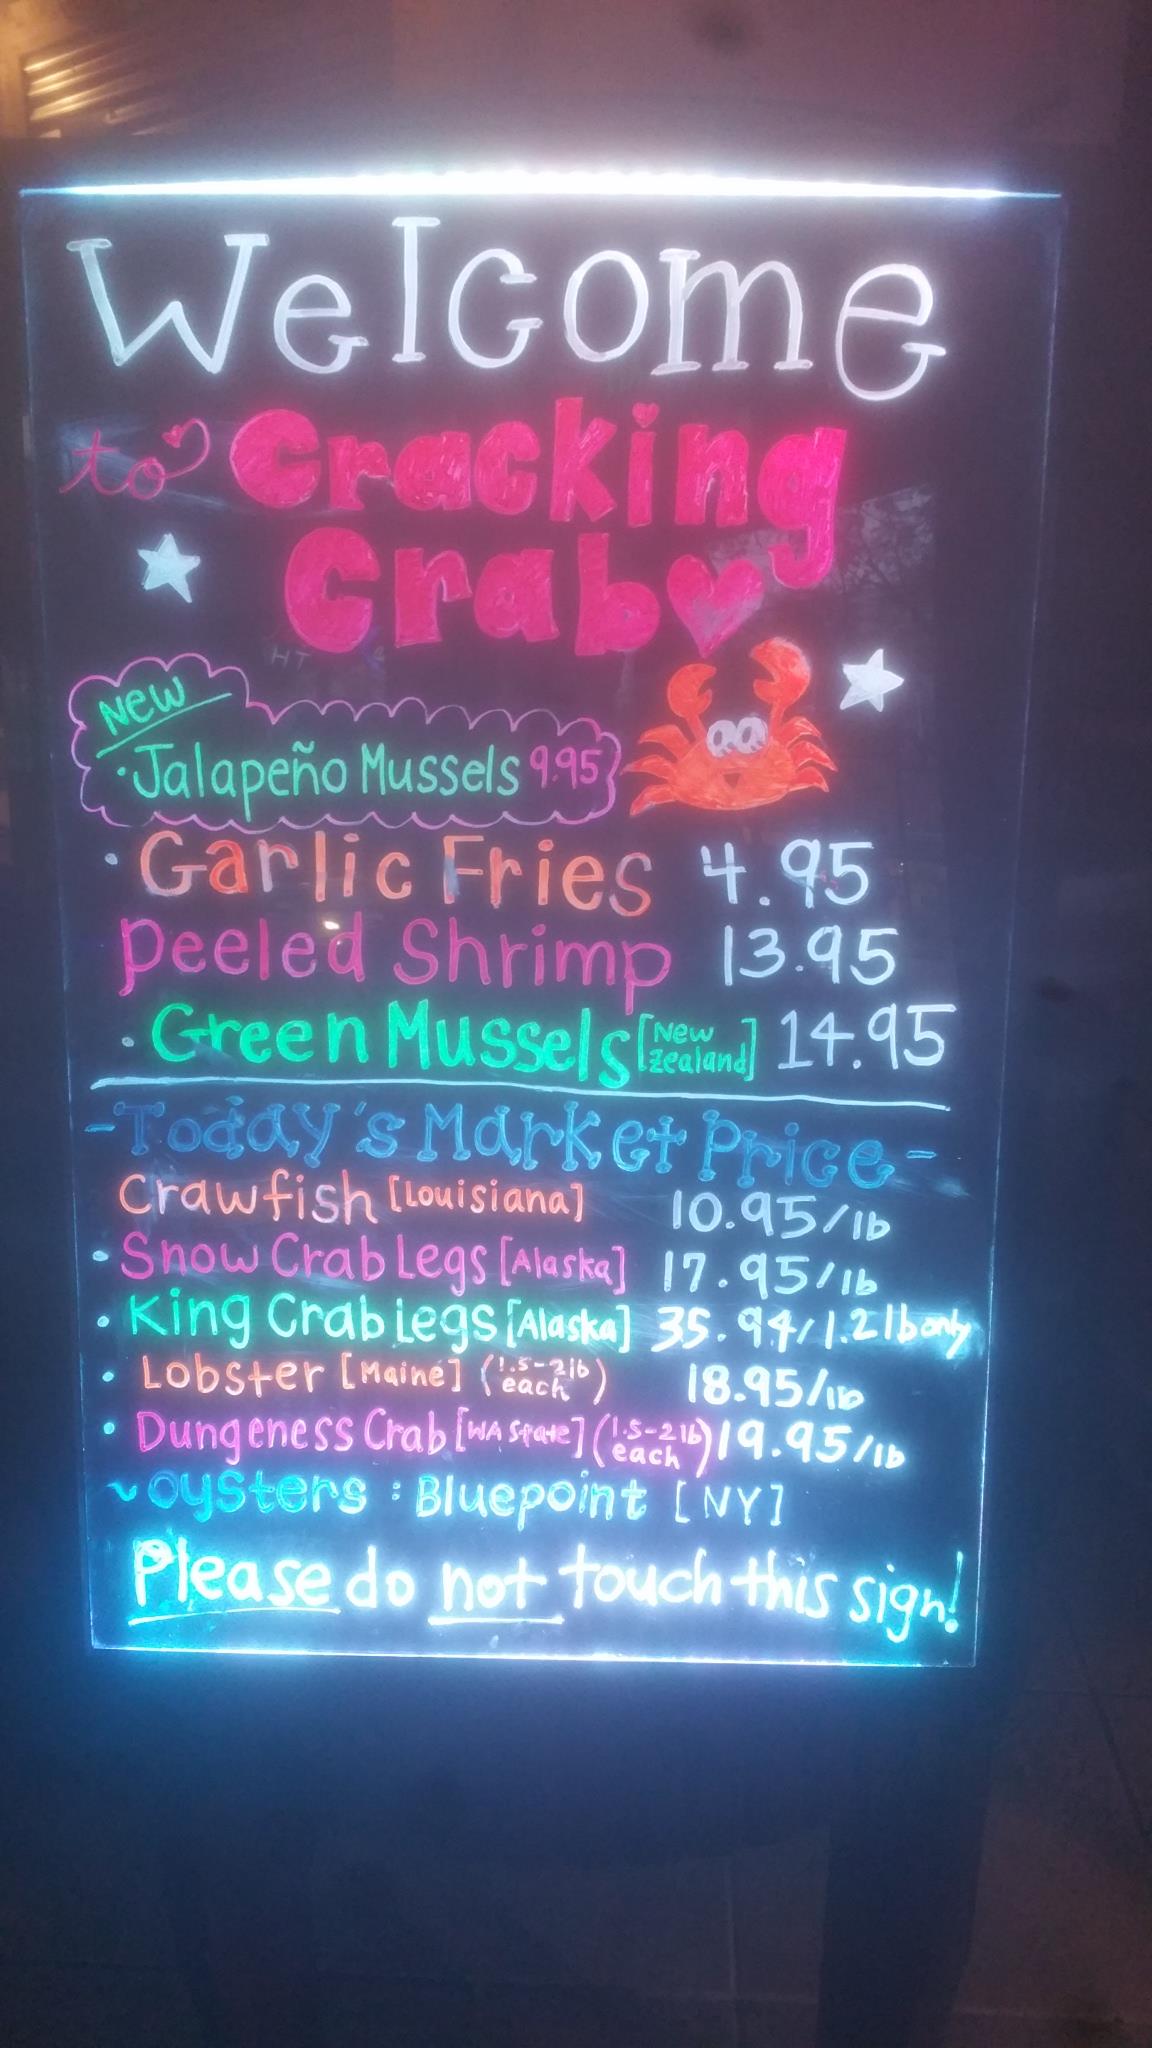 Welcome
to Cracking
Crab
New
· Jalapeño Mussels 9.95
· Garlic Fries 4.95
Peeled Shrimp 13.95
· Green Mussels [New Zealand] 14.95
- Today's Market Price -
Crawfish [Louisiana] 10.95/lb
· Snow Crab Legs [Alaska] 17.95/lb
· King Crab Legs [Alaska] 35.94/1.2 lb only
· Lobster [Maine] (1.5-2lb each) 18.95/lb
· Dungeness Crab [WA State] (1.5-2lb each) 19.95/lb
~ Oysters : Bluepoint [NY]
Please do not touch this sign!